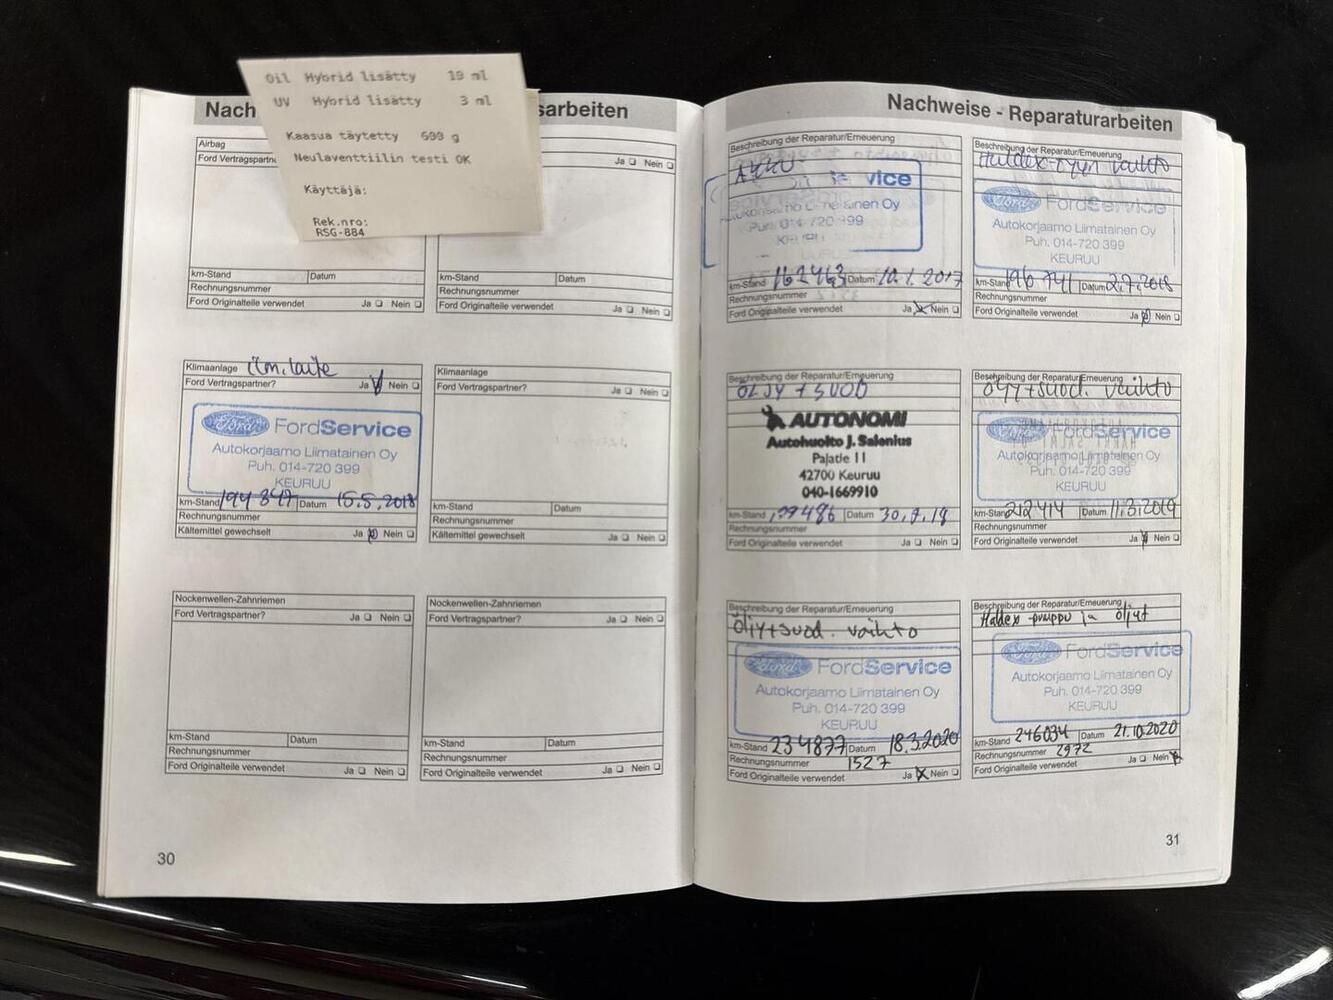 Oil Hybrid lisätty 19 ml
UV Hybrid lisätty 3 ml
Kaasua täytetty 600 g
Neulaventtiilin testi OK
Käyttäjä:
Rek.nro:
RSG-884
Nach
sarbeiten
Airbag
Ford Vertragspartn
Ja Nein
km-Stand Datum
Rechnungsnummer
Ford Originalteile verwendet Ja Nein
km-Stand Datum
Rechnungsnummer
Ford Originalteile verwendet Ja Nein
Klimaanlage ilm.laite
Ford Vertragspartner? Ja Nein
Ford FordService
Autokorjaamo Liimatainen Oy
Puh. 014-720 399
KEURUU
km-Stand 194 847 Datum 15.5.2018
Rechnungsnummer
Kältemittel gewechselt Ja Nein
Klimaanlage
Ford Vertragspartner? Ja Nein
km-Stand Datum
Rechnungsnummer
Kältemittel gewechselt Ja Nein
Nockenwellen-Zahnriemen
Ford Vertragspartner? Ja Nein
km-Stand Datum
Rechnungsnummer
Ford Originalteile verwendet Ja Nein
Nockenwellen-Zahnriemen
Ford Vertragspartner? Ja Nein
km-Stand Datum
Rechnungsnummer
Ford Originalteile verwendet Ja Nein
30
Nachweise - Reparaturarbeiten
Beschreibung der Reparatur/Erneuerung
AKKU
vice
Oy
Puh. 014-720 399
km-Stand 162463 Datum 12.1.2017
Rechnungsnummer
Ford Originalteile verwendet Ja Nein
Beschreibung der Reparatur/Erneuerung
Haldex-öljyn vaihto
Ford FordService
Autokorjaamo Liimatainen Oy
Puh. 014-720 399
KEURUU
km-Stand 196 741 Datum 2.7.2018
Rechnungsnummer
Ford Originalteile verwendet Ja Nein
Beschreibung der Reparatur/Erneuerung
ÖLJY + SUOD
AUTONOMI
Autohuolto J. Salenius
Pajatie 11
42700 Keuruu
040-1669910
km-Stand 199486 Datum 30.8.18
Rechnungsnummer
Ford Originalteile verwendet Ja Nein
Beschreibung der Reparatur/Erneuerung
öljy+suod. vaihto
Ford FordService
Autokorjaamo Liimatainen Oy
Puh. 014-720 399
KEURUU
km-Stand 212414 Datum 11.3.2019
Rechnungsnummer
Ford Originalteile verwendet Ja Nein
Beschreibung der Reparatur/Erneuerung
Öljy+suod. vaihto
Ford FordService
Autokorjaamo Liimatainen Oy
Puh. 014-720 399
KEURUU
km-Stand 234877 Datum 18.3.2020
Rechnungsnummer 1527
Ford Originalteile verwendet Ja Nein
Beschreibung der Reparatur/Erneuerung
Haldex pumppu ja öljyt
Ford FordService
Autokorjaamo Liimatainen Oy
Puh. 014-720 399
KEURUU
km-Stand 246034 Datum 21.10.2020
Rechnungsnummer 2972
Ford Originalteile verwendet Ja Nein
31